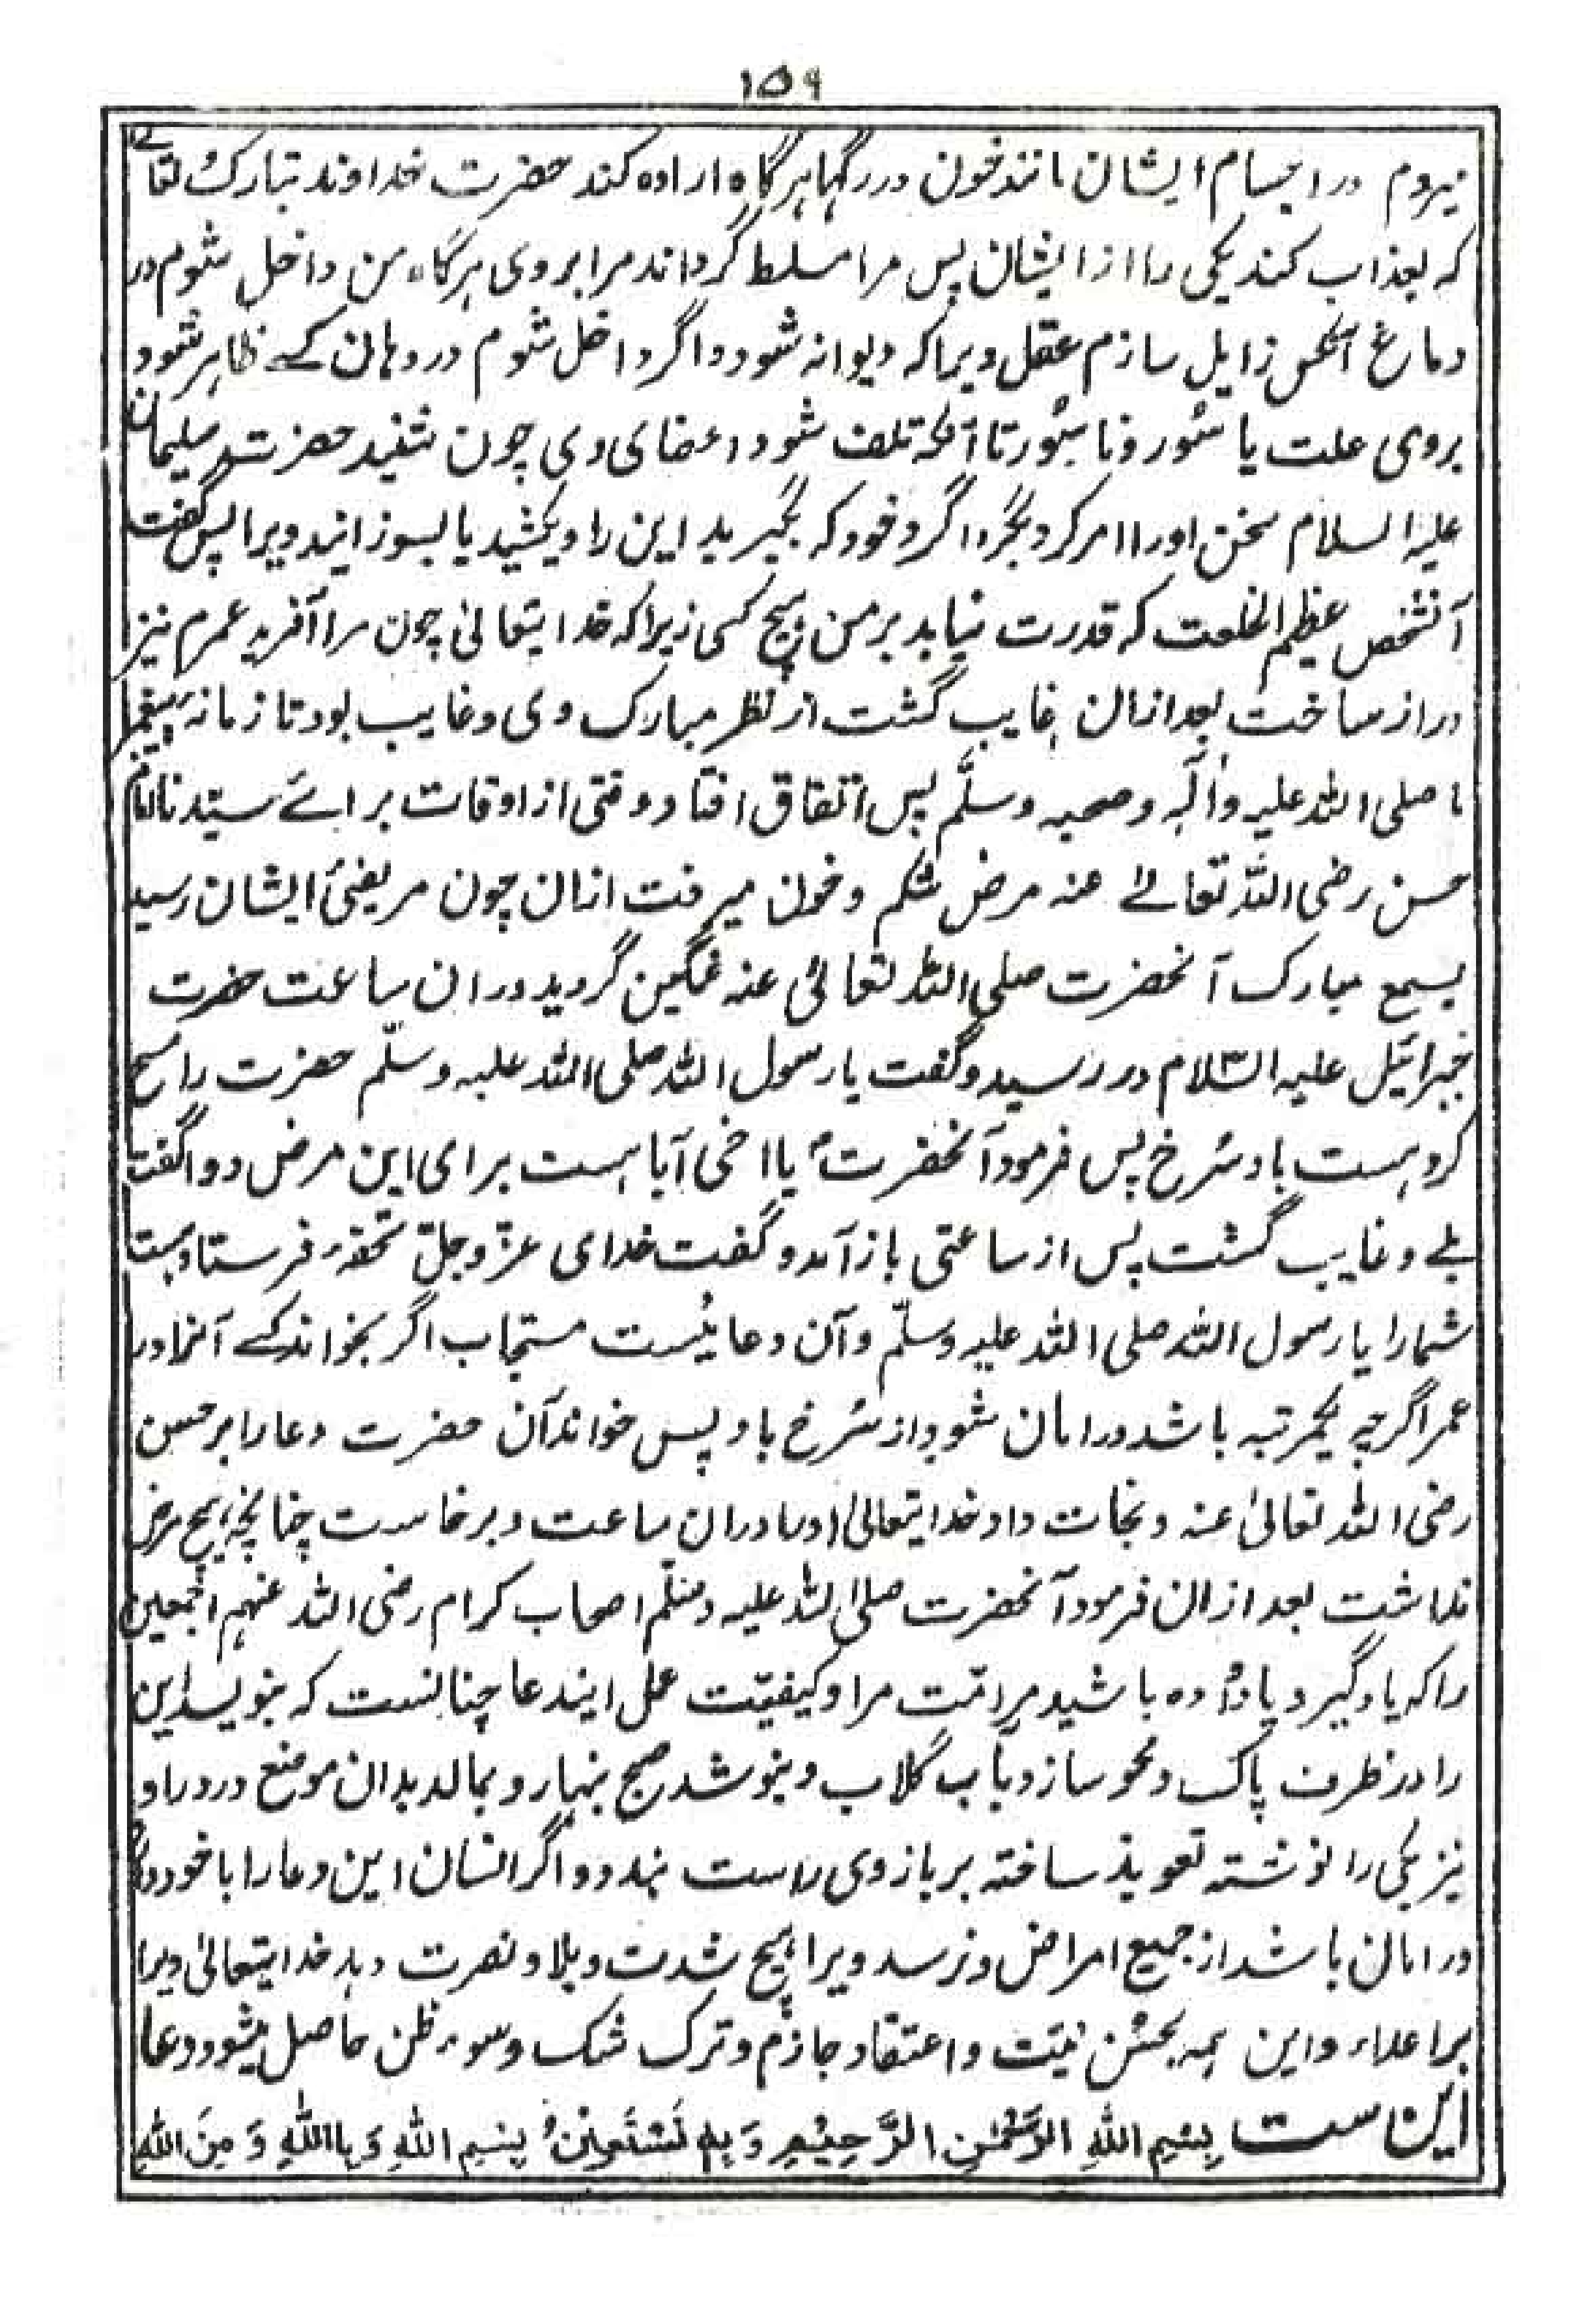 ۱۵۹
میروم در اجسام ایشان مانند خون در رگها هرگاه اراده کند حضرت خداوند تبارک تعالے
که بعذاب کند یکی را از ایشان پس مرا مسلط گرداند مرا بروی هرگاه من داخل شوم در
دماغ آنکس زایل سازم عقل ویرا که دیوانه شود و اگر داخل شوم در دهان کسے ظاهر شود
بروی علت یا سور و ناسور تا آنکه تلف شود اعضای وی چون شنید حضرت سلیمان
علیه السلام سخن او را امر کرد بگرد اگر خود که بگیرید این را و بکشید یا بسوزانید ویرا پس گفت
آنشخص عظیم الخلعت که قدرت نیابد بر من هیچ کسی زیرا که خدایتعالیٰ چون مرا آفرید عمرم نیز
دراز ساخت بعد ازان غایب گشت از نظر مبارک وی و غایب بود تا زمانهٔ پیغمبر
ما صلی الله علیه وآله وصحبه وسلّم پس اتفاق افتاد وقتی از اوقات برائے سیّدنا امام
حسن رضی الله تعالےٰ عنه مرض شکم و خون میرفت ازان چون مریضیٔ ایشان رسید
بسمع مبارک آنحضرت صلی الله تعالیٰ عنه غمگین گردید دران ساعت حضرت
جبرائیل علیه السّلام در رسید و گفت یا رسول الله صلی الله علیه وسلّم حضرت را مسح
کرد هست باد سُرخ پس فرمود آنحضرتؐ یا اخی آیا هست برای این مرض دوا گفت
بلے و غایب گشت پس از ساعتی باز آمد و گفت خدای عزّ وجلّ تحفهٔ فرستاد هست
شما را یا رسول الله صلی الله علیه وسلّم وآن دعائیست مستجاب اگر بخواند کسے آنرا در
عمر اگرچه یکمرتبه باشد در امان شود از سُرخ باد پس خواند آن حضرت دعا را بر حسن
رضی الله تعالیٰ عنه و نجات داد خدایتعالیٰ او را دران ساعت و برخاست چنانچه هیچ مرض
نداشت بعد ازان فرمود آنحضرت صلی الله علیه وسلّم اصحاب کرام رضی الله عنهم اجمعین
را که یاد گیرد یاد داده باشید مر امّت مرا و کیفیّت عمل ایندعا چنانست که بنویسد این
را در ظرف پاک و محو سازد بآب گلاب و بنوشد صبح بنهار و بمالد بدان موضع درد را و
نیز یکی را نوشته تعویذ ساخته بر بازوی راست بندد و اگر انسان این دعا را با خود دارد
در امان باشد از جمیع امراض و نرسد ویرا هیچ شدت و بلا و نصرت دهد خدایتعالیٰ ویرا
بر اعداء و این همه بحسُن نیّت و اعتقاد جازم و ترک شک و سوء ظن حاصل میشود و دعا
این است بِسْمِ اللهِ الرَّحْمٰنِ الرَّحِیْمِ وَ بِهٖ نَسْتَعِیْنُ بِسْمِ اللهِ وَ بِاللهِ وَ مِنَ اللهِ